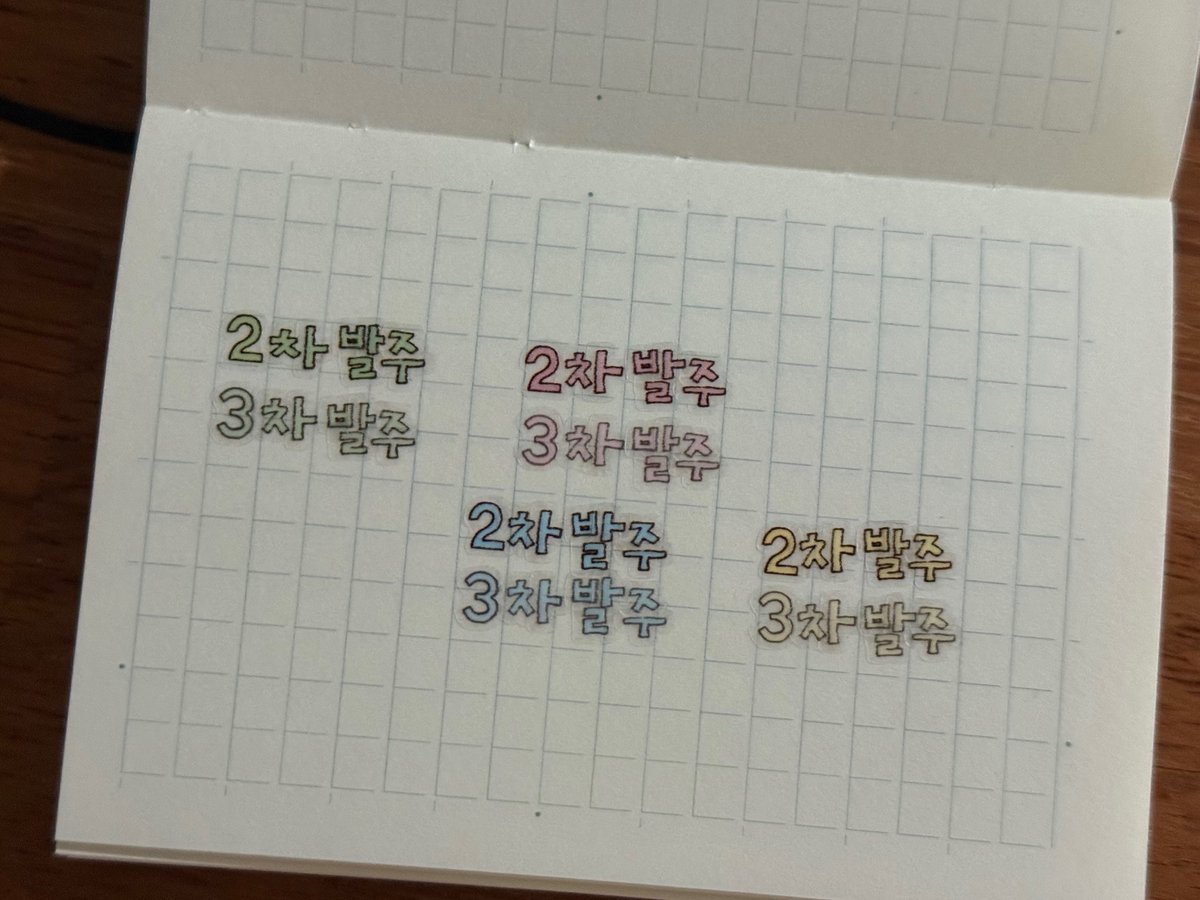 2차 발주
3차 발주
2차 발주
3차 발주
2차 발주
3차 발주
2차 발주
3차 발주